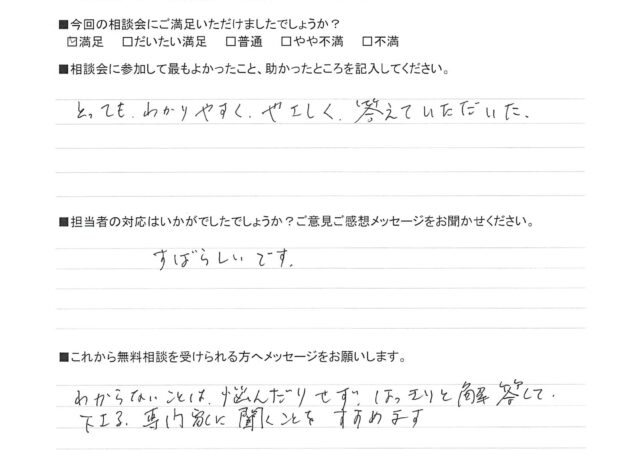 ■今回の相談会にご満足いただけましたでしょうか？
☑満足 □だいたい満足 □普通 □やや不満 □不満
■相談会に参加して最もよかったこと、助かったところを記入してください。
とっても、わかりやすく、やさしく、答えていただいた。
■担当者の対応はいかがでしたでしょうか？ご意見ご感想メッセージをお聞かせください。
すばらしいです。
■これから無料相談を受けられる方へメッセージをお願いします。
わからないことは、悩んだりせず、はっきりと解答して、
下さる、専門家に聞くことをすすめます